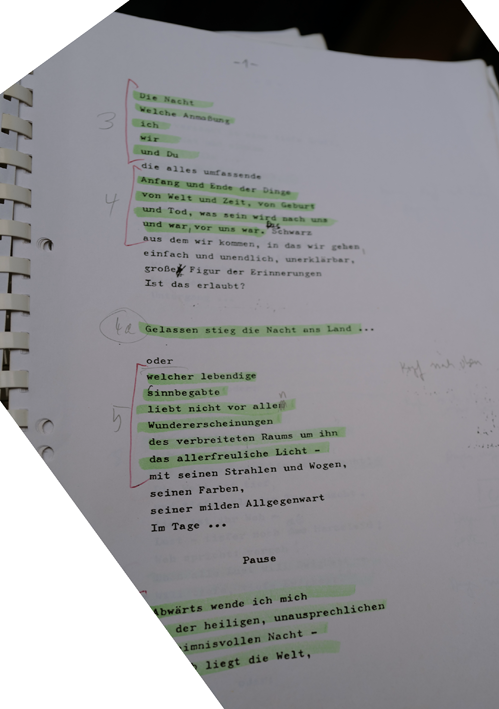 -1-
3
Die Nacht
Welche Anmaßung
ich
wir
und Du
die alles umfassende
4
Anfang und Ende der Dinge
von Welt und Zeit, von Geburt
und Tod, was sein wird nach uns
und war, vor uns war. Das Schwarz
aus dem wir kommen, in das wir gehen,
einfach und unendlich, unerklärbar,
große Figur der Erinnerungen
Ist das erlaubt?
4a
Gelassen stieg die Nacht ans Land ...
oder
welcher lebendige
sinnbegabte
5
liebt nicht vor allen
Wundererscheinungen
des verbreiteten Raums um ihn
das allerfreuliche Licht -
mit seinen Strahlen und Wogen,
seinen Farben,
seiner milden Allgegenwart
Im Tage ...
Pause
Abwärts wende ich mich
der heiligen, unausprechlichen
imnisvollen Nacht -
liegt die Welt,